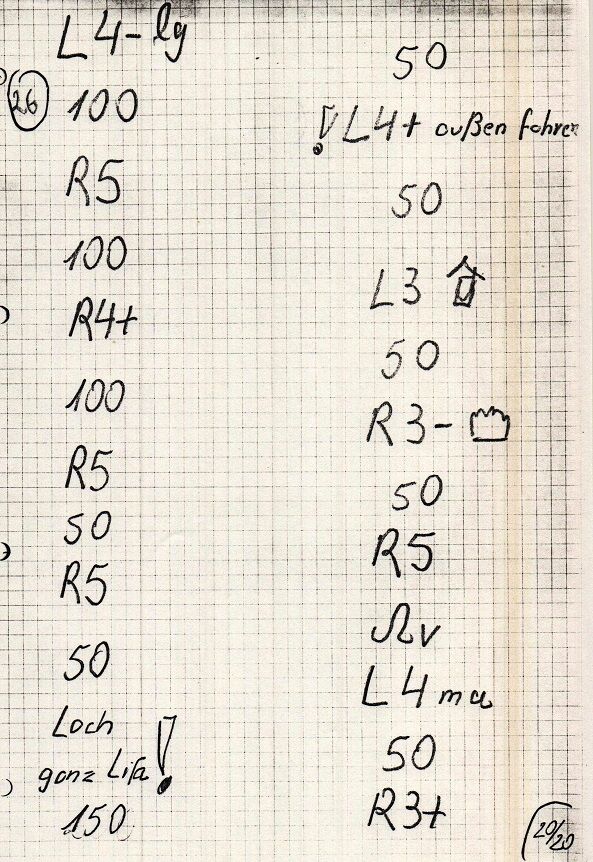 L4-lg
26 100
R5
100
R4+
100
R5
50
R5
50
Loch
ganz Lifa!
150
50
! L4+ außen fahren
50
L3
50
R3-
50
R5
Ωv
L4 ma
50
R3+
20/20